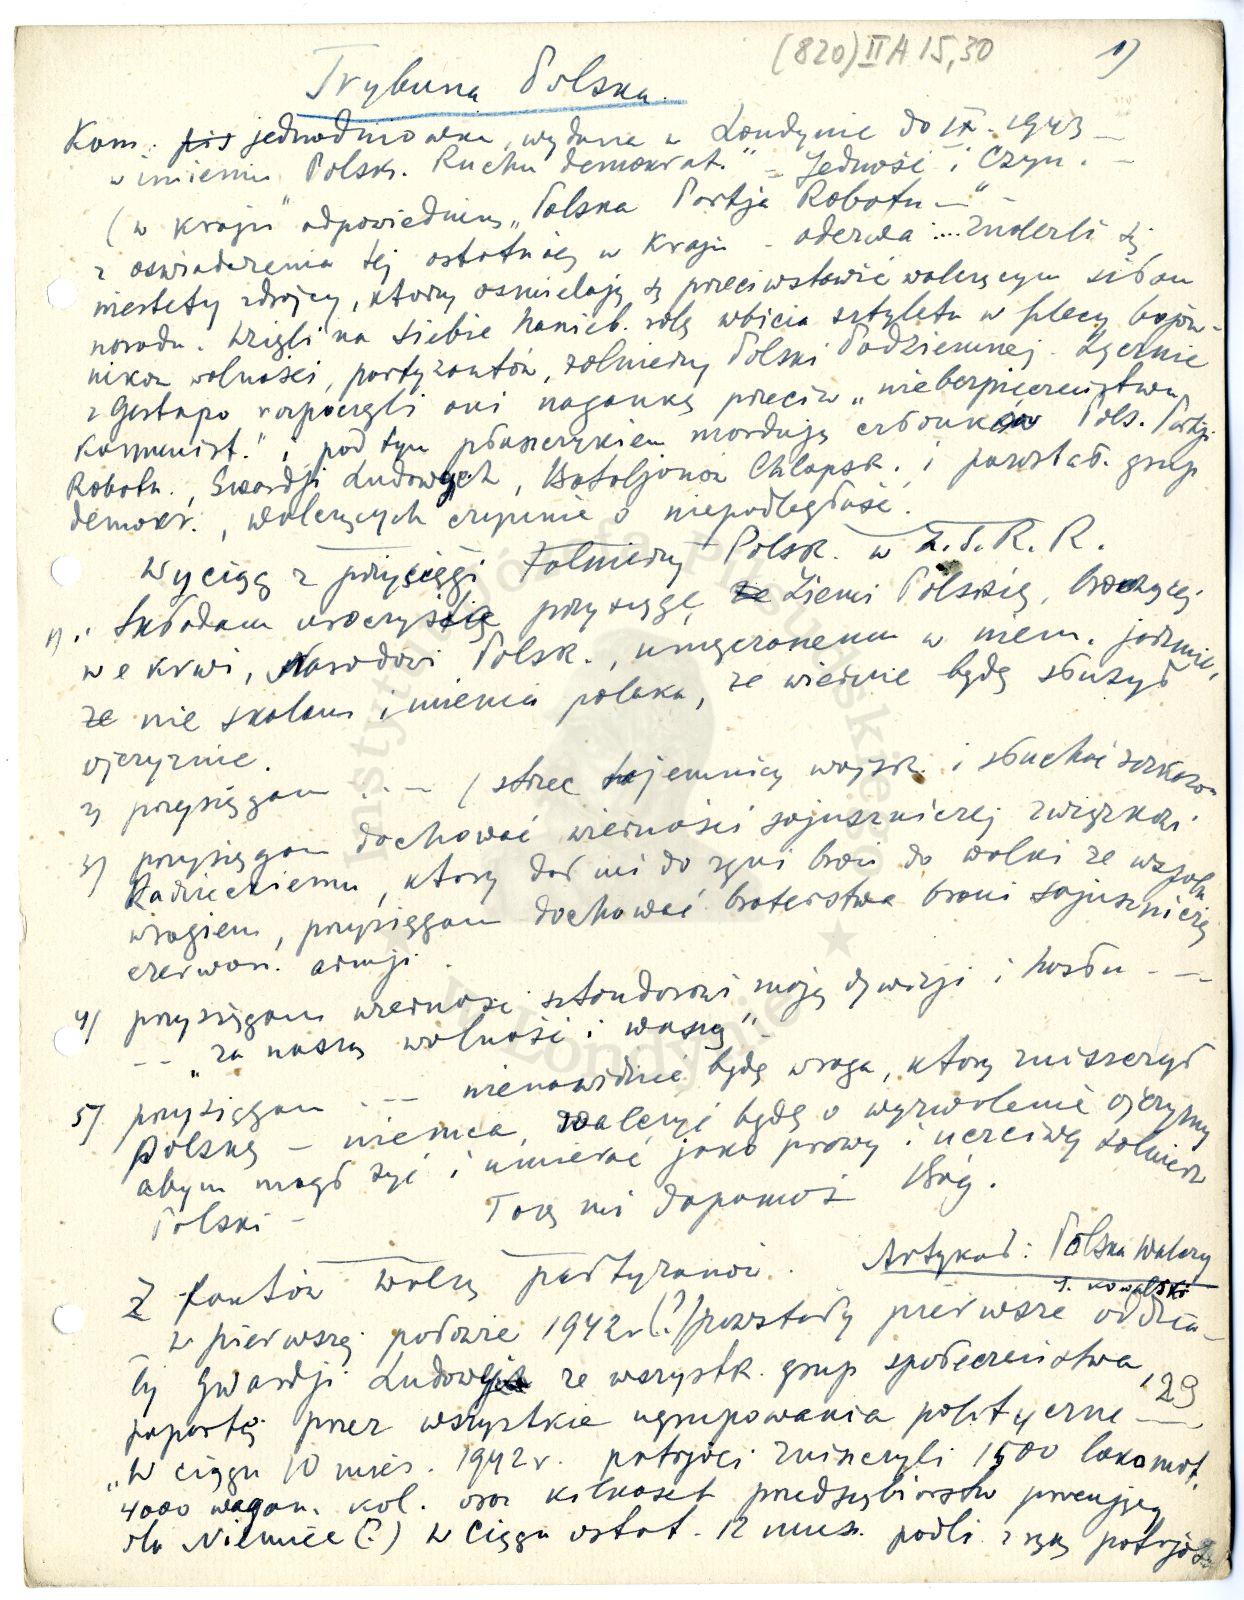 (820) II A 15,30
1)
Trybuna Polska.
Kom. pis jednodniówka, wydana w Londynie do IX. 1943 —
w imieniu Polsk. Ruchu demokrat. "Jedność i Czyn". —
(w kraju odpowiednik „Polska Partja Robotn—"
z oświadczenia tej ostatniej w kraju - odezwa .... znaleźli się
niestety zdrajcy, którzy ośmielają się przeciwstawić walczącym siłom
narodu. Wzięli na siebie hanieb. rolę wbicia sztyletu w plecy bojow-
nikom wolności, partyzantów, żołnierzy Polski Podziemnej.
z Gestapo rozpoczęli oni nagonkę przeciw „niebezpieczeństwu
komunist." i pod tym płaszczykiem mordują członków Pols. Partji
Robotn., Gwardji Ludowych, Bataljonów Chłopsk. i pozostał. grup
demokr., walczących czynnie o niepodległość.
Wyciąg z przysięgi Żołnierzy Polsk. w Z.S.R.R.
1) Składam uroczystą przysięgę, Ziemi Polskiej, broczącej
we krwi, Narodowi Polsk., umęczonemu w niem. jarzmie,
że nie skalam imienia polaka, że wiernie będę służył
ojczyznie.
2) przysięgam ... — (strzec tajemnicy wojsk. i słuchać rozkazów
3) przysięgam dochować wierności sojuszniczej związkowi
Radzieckiemu, który dał mi do ręki broń do walki ze wspóln.
wrogiem, przysięgam dochować braterstwa broni sojuszniczej
czerwon. armji.
4) przysięgam wierność sztandarowi mojej dywizji i hasłu - —
-- „za naszą wolność i waszą"
5) przysięgam ... — nienawidzieć będę wroga, który zniszczył
Polskę — niemca, walczyć będę o wyzwolenie ojczyzny
abym mógł żyć i umierać jako prawy i uczciwy żołnierz
Polski - Tak mi dopomóż Bóg.
Artykuł: Polska Walczy
J. Kowalski
Z faktów walk partyzanckich.
w pierwszej połowie 1942 r (?) powstały pierwsze oddzia-
ły Gwardji Ludowej ze wszystk. grup społeczeństwa,
popartej przez wszystkie ugrupowania polityczne —
29
„W ciągu 10 mies. 1942 r. patrjoci zniszczyli 1500 lokomot.
4000 wagon. kol. oraz kilkaset przedsiębiorstw pracujący
dla Niemiec (?) w ciągu ostat. 12 mies. padli z ręki patrjot
Instytut Józefa Piłsudskiego
w Londynie